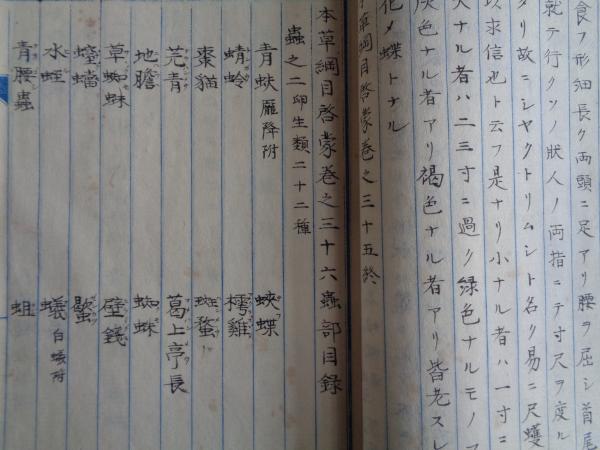 食フ形細長ク両頭ニ足アリ腰ヲ屈シ首尾
就テ行クソノ狀人ノ両指ニテ寸尺ヲ度ル
タリ故ニシヤクトリムシト名ク易ニ尺蠖
以求信也ト云フ是ナリ小ナル者ハ一寸ニ
大ナル者ハ二三寸ニ過ク緑色ナルモノア
灰色ナル者アリ褐色ナル者アリ皆老スレ
化メ蝶トナル
草綱目啓蒙巻之三十五終
本草綱目啓蒙巻之三十六蟲部目録
蟲之二卵生類二十二種
青蚨 龐降附 蛺蝶
蜻蛉 樗雞
棗猫 斑蝥
芫青 葛上亭長
地膽 蜘蛛
草蜘蛛 壁錢
螲蟷 蠍
水蛭 蟻 白蟻附
青腰蟲 蛆